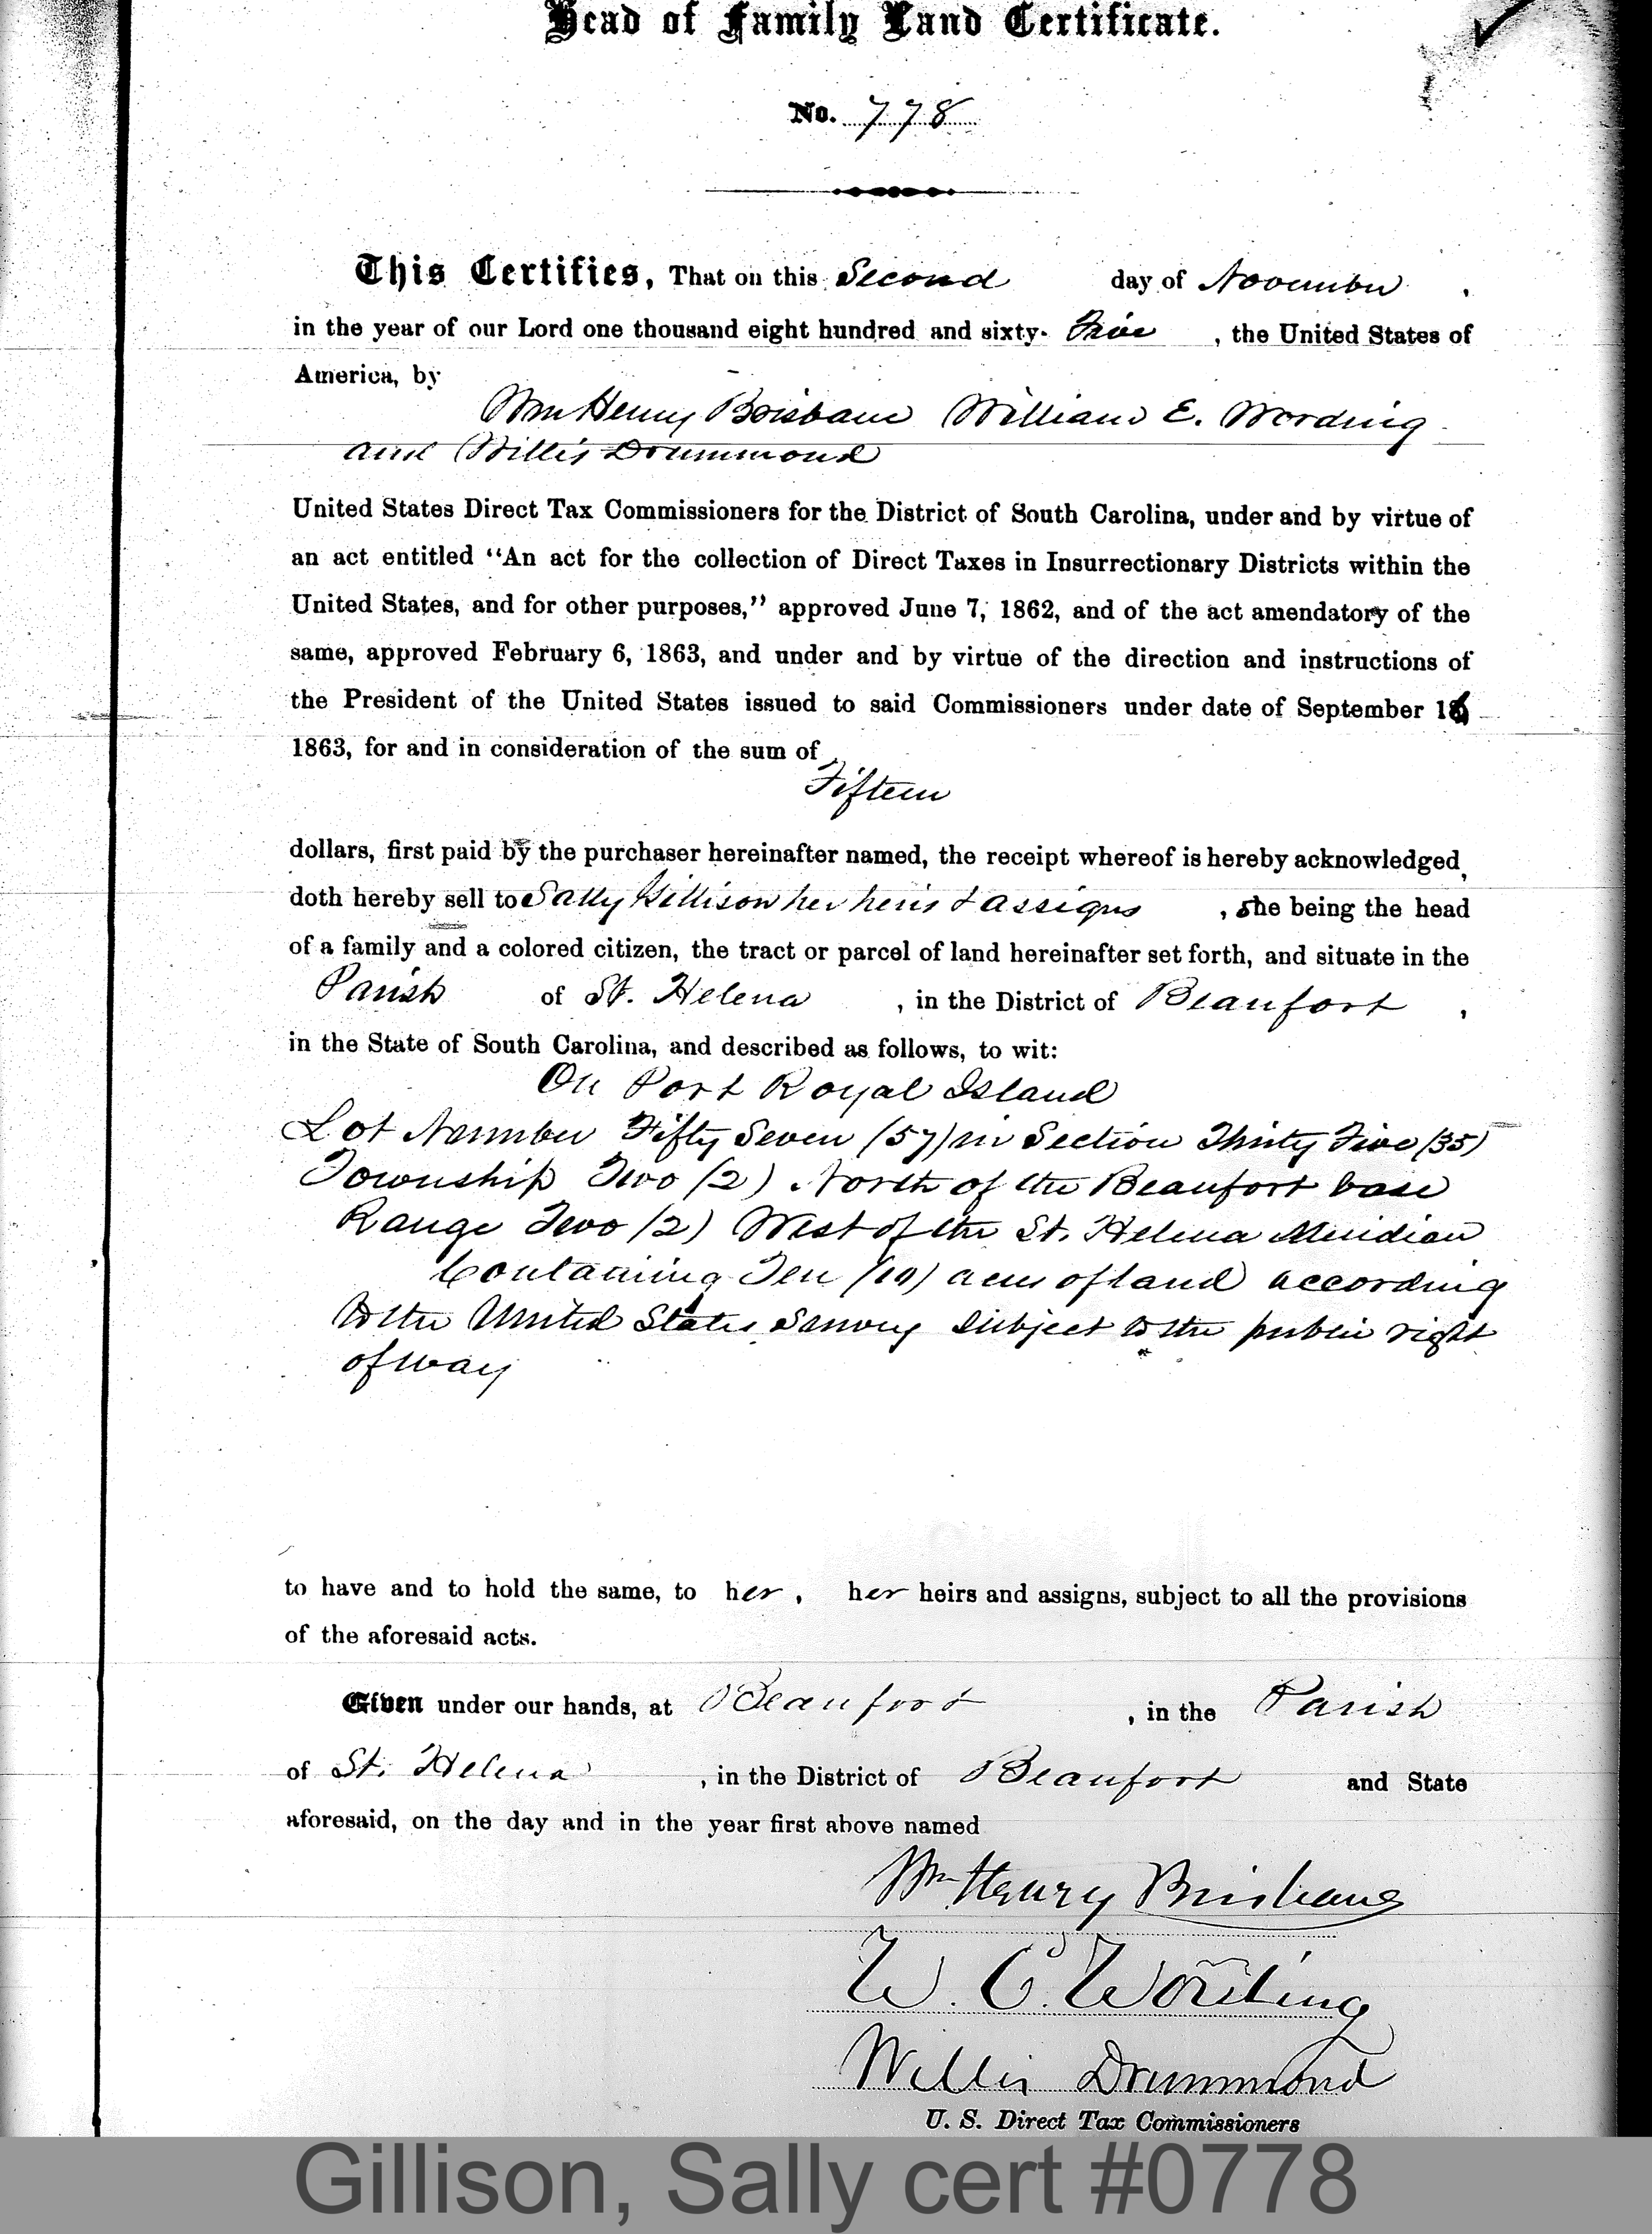 Head of Family Land Certificate.
No. 778
This Certifies, That on this Second day of November,
in the year of our Lord one thousand eight hundred and sixty-Five, the United States of
America, by
Wm Henry Brisbane William E. Wording
and Willis Drummond
United States Direct Tax Commissioners for the District of South Carolina, under and by virtue of
an act entitled “An act for the collection of Direct Taxes in Insurrectionary Districts within the
United States, and for other purposes,” approved June 7, 1862, and of the act amendatory of the
same, approved February 6, 1863, and under and by virtue of the direction and instructions of
the President of the United States issued to said Commissioners under date of September 16
1863, for and in consideration of the sum of
Fifteen
dollars, first paid by the purchaser hereinafter named, the receipt whereof is hereby acknowledged,
doth hereby sell to Sally Gillison her heirs & assigns, she being the head
of a family and a colored citizen, the tract or parcel of land hereinafter set forth, and situate in the
Parish of St. Helena, in the District of Beaufort,
in the State of South Carolina, and described as follows, to wit:
On Port Royal Island
Lot Number Fifty Seven (57) in Section Thirty Five (35)
Township Two (2) North of the Beaufort base
Range Two (2) West of the St. Helena Meridian
Containing Ten (10) acres of land according
to the United States Survey subject to the public right
of way
to have and to hold the same, to her, her heirs and assigns, subject to all the provisions
of the aforesaid acts.
Given under our hands, at Beaufort, in the Parish
of St. Helena, in the District of Beaufort and State
aforesaid, on the day and in the year first above named
Wm Henry Brisbane
W. E. Wording
Willis Drummond
U. S. Direct Tax Commissioners
Gillison, Sally cert #0778